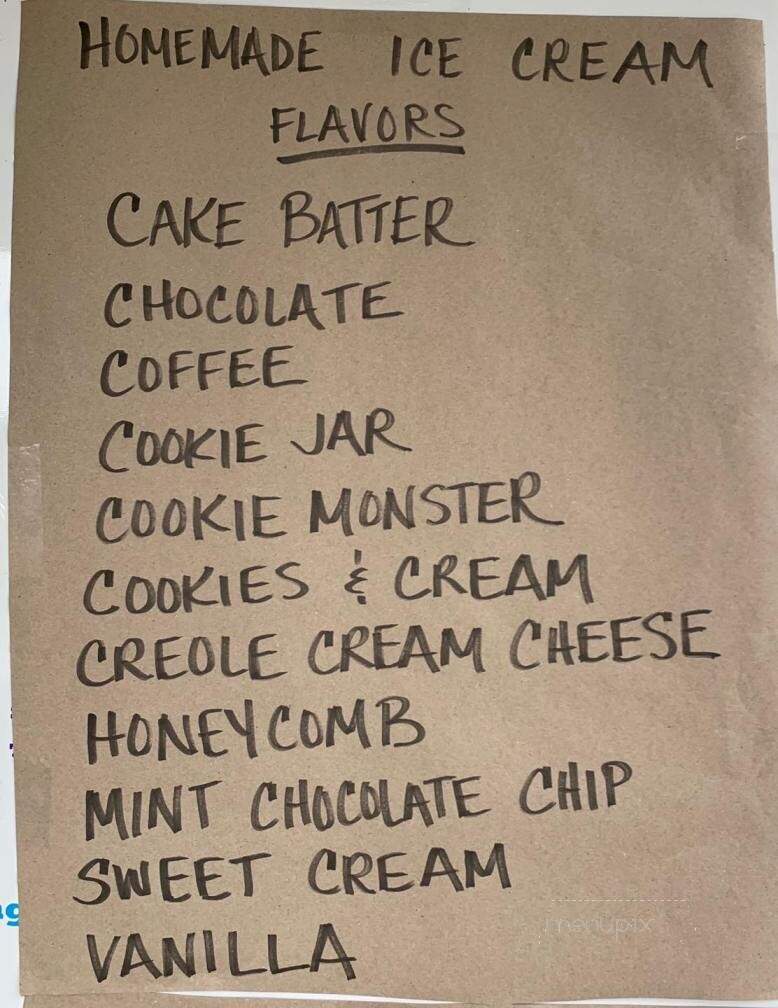 HOMEMADE ICE CREAM
FLAVORS
CAKE BATTER
CHOCOLATE
COFFEE
COOKIE JAR
COOKIE MONSTER
COOKIES & CREAM
CREOLE CREAM CHEESE
HONEYCOMB
MINT CHOCOLATE CHIP
SWEET CREAM
VANILLA
menupix